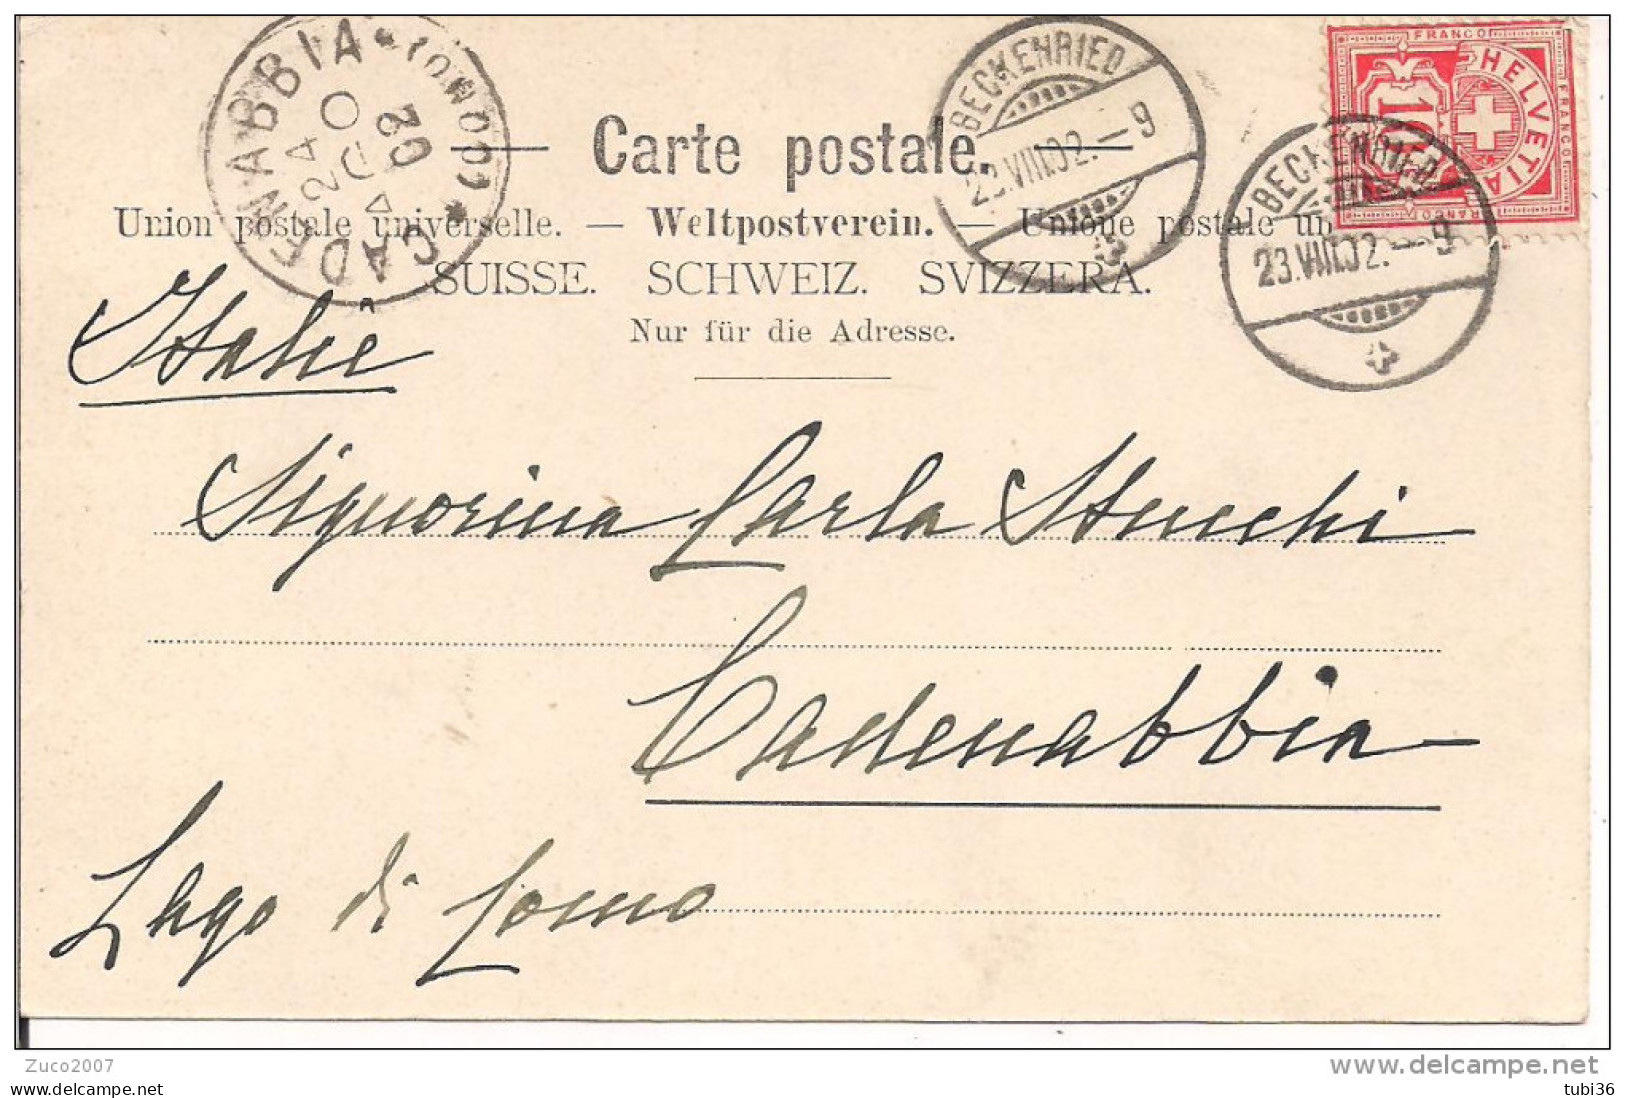 CADENABBIA (COMO)
24 AGO 02
BECKENRIED
23.VIII.02.–9
FRANCO
HELVETIA
10
FRANCO
FRANCO
BECKENRIED
23.VIII.02.–9
Carte postale.
Union postale universelle. — Weltpostverein. — Unione postale un
SUISSE. SCHWEIZ. SVIZZERA.
Nur für die Adresse.
Italie
Signorina Carla Stucchi
Cadenabbia
Lago di Como
Zuco2007
www.delcampe.net
tubi36